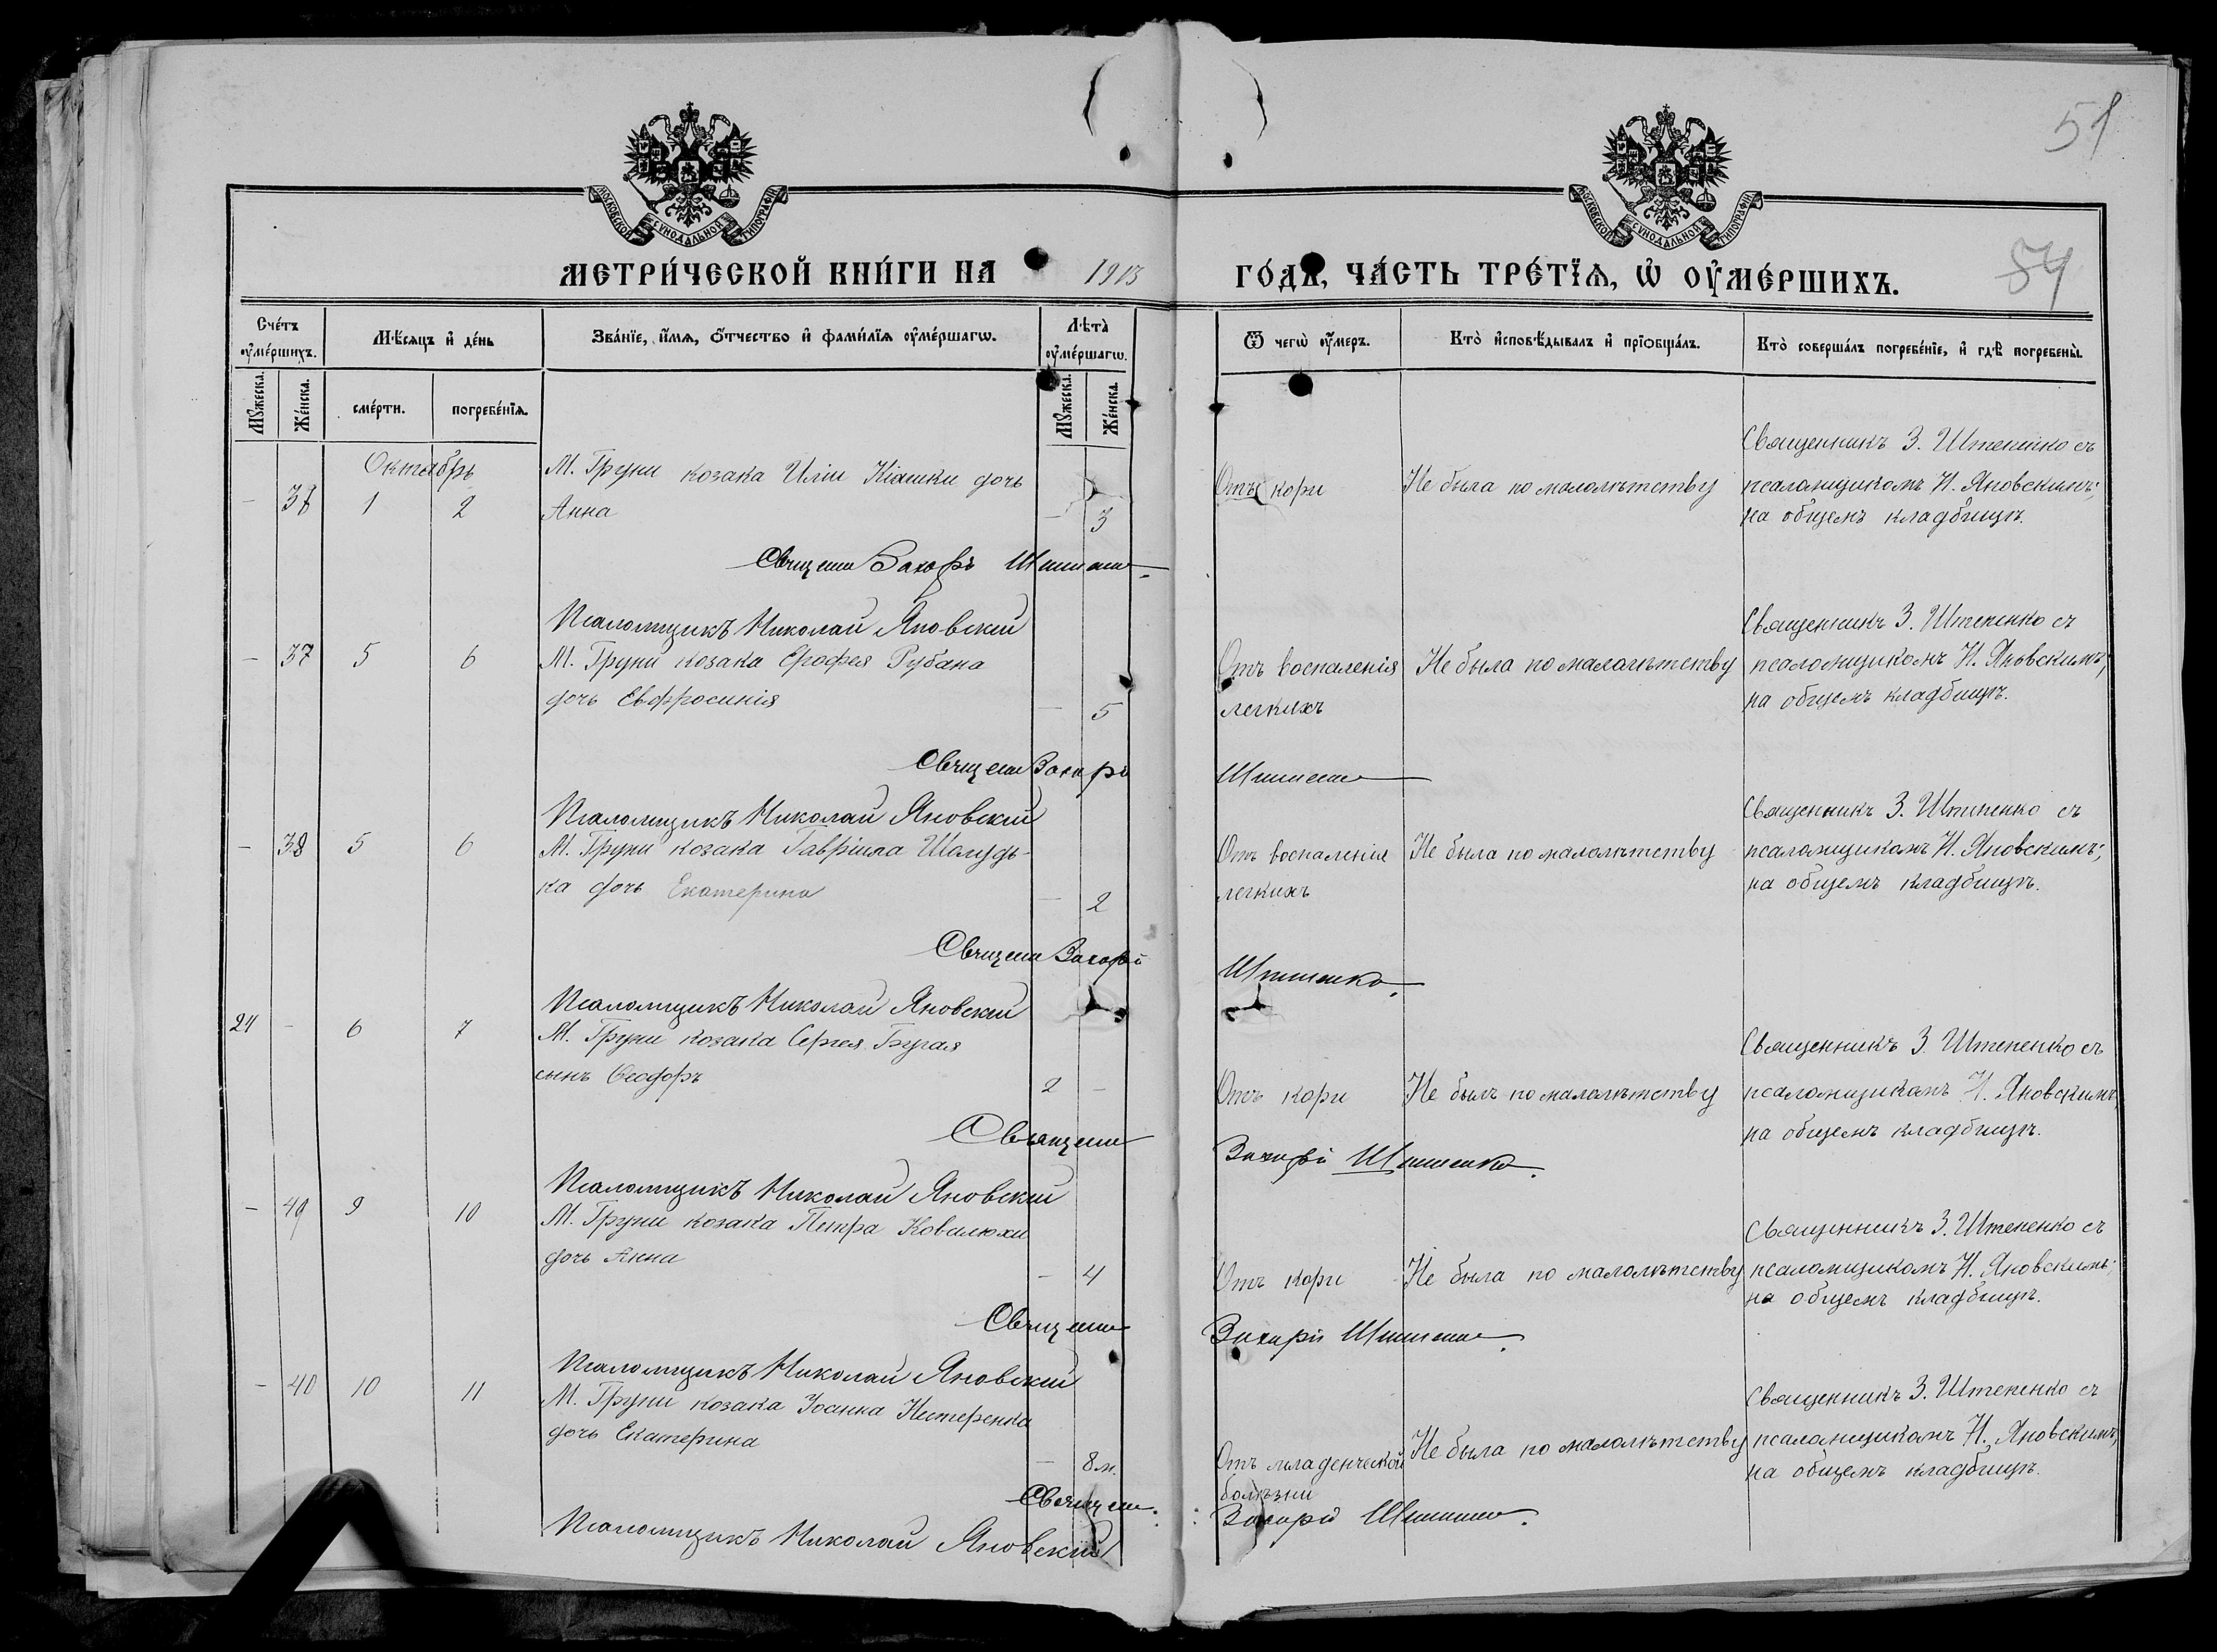 51
МОСКОВСКОЙ СѴНОДАЛЬНОЙ ТИПОГРАФІИ
МОСКОВСКОЙ СѴНОДАЛЬНОЙ ТИПОГРАФІИ
МЕТРИ́ЧЕСКОЙ КНИ́ГИ НА 1913 ГО́ДЪ, ЧА́СТЬ ТРЕ́ТЇѦ, Ѡ҆ ОУ҆МЕ́РШИХЪ.
84
Сче́тъ оу҆ме́ршихъ.
Мѣ́сяцъ и҆ де́нь
Зва́нїе, и҆́мѧ, ѻ҆́тчество и҆ фами́лїѧ оу҆ме́ршагѡ.
Лѣта̀ оу҆ме́ршагѡ.
Ѿ чегѡ̀ оу҆́меръ.
Кто̀ и҆сповѣ́дывалъ и҆ прїѡбща́лъ.
Кто̀ соверша́лъ погребе́нїе, и҆ гдѣ̀ погребены̀.
Мꙋ́жеска.
Же́нска.
сме́рти.
погребе́нїѧ.
Мꙋ́жеска.
Же́нска.
Октябрь
М. Груни козака Иліи Кіашки дочь
Анна
- 36 1 2 - 3
Отъ кори
Не была по малолѣтству
Священникъ З. Штепенко съ
псаломщикомъ Н. Яновскимъ;
на общемъ кладбищѣ.
Священ Захарій Штепенко
Псаломщикъ Николай Яновскій
- 37 5 6
М. Груни козака Ерофея Рубана
дочь Евфросинія
- 5
Отъ воспаленія
легкихъ
Не была по малолѣтству
Священникъ З. Штепенко съ
псаломщикомъ Н. Яновскимъ,
на общемъ кладбищѣ.
Священ Захарій Штепенко
Псаломщикъ Николай Яновскій
- 38 5 6
М. Груни козака Гавріила Шолудь-
ка дочь Екатерина
- 2
Отъ воспаленія
легкихъ
Не была по малолѣтству
Священникъ З. Штепенко съ
псаломщикомъ Н. Яновскимъ;
на общемъ кладбищѣ.
Священ Захарій Штепенко.
Псаломщикъ Николай Яновскій
24 - 6 7
М. Груни козака Сергея Бугая
сынъ Ѳеодоръ
2 -
Отъ кори
Не былъ по малолѣтству
Священникъ З. Штепенко съ
псаломщикомъ Н. Яновскимъ,
на общемъ кладбищѣ.
Священ Захарій Штепенко.
Псаломщикъ Николай Яновскій
- 49 9 10
М. Груни козака Петра Ковалюхи
дочь Анна
- 4
Отъ кори
Не была по малолѣтству
Священникъ З. Штепенко съ
псаломщикомъ Н. Яновскимъ;
на общемъ кладбищѣ.
Священ Захарій Штепенко.
Псаломщикъ Николай Яновскій
- 40 10 11
М. Груни козака Іоанна Нестеренка
дочь Екатерина
- 8 м.
Отъ младенческой
болѣзни
Не была по малолѣтству
Священникъ З. Штепенко съ
псаломщикомъ Н. Яновскимъ,
на общемъ кладбищѣ.
Священ. Захарій Штепенко.
Псаломщикъ Николай Яновскій